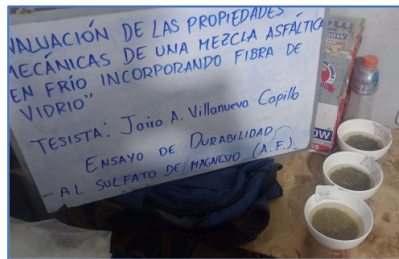 EVALUACIÓN DE LAS PROPIEDADES
MECÁNICAS DE UNA MEZCLA ASFÁLTICA
EN FRÍO INCORPORANDO FIBRA DE
VIDRIO"
TESISTA: Jairo A. Villanueva Capillo
ENSAYO DE DURABILIDAD
- AL SULFATO DE MAGNESIO (A.F.).